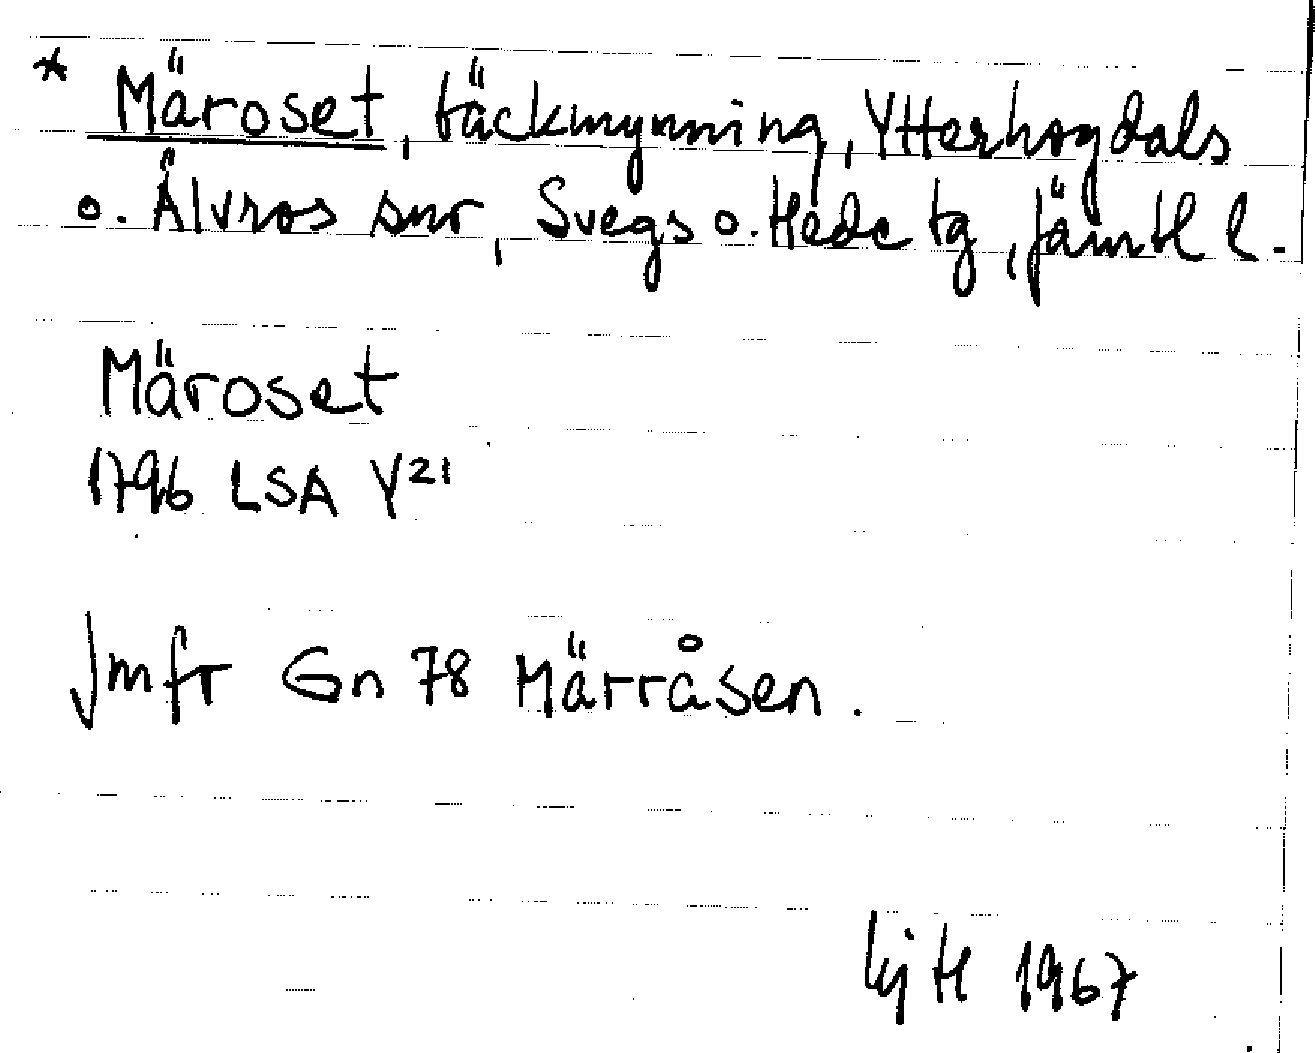 * Märoset, bäckmynning, Ytterhogdals
o. Älvros snr, Svegs o. Hede tg, Jämtl l.
Märoset
1796 LSA Y21
Jmfr Gn 78 Märråsen.
1967